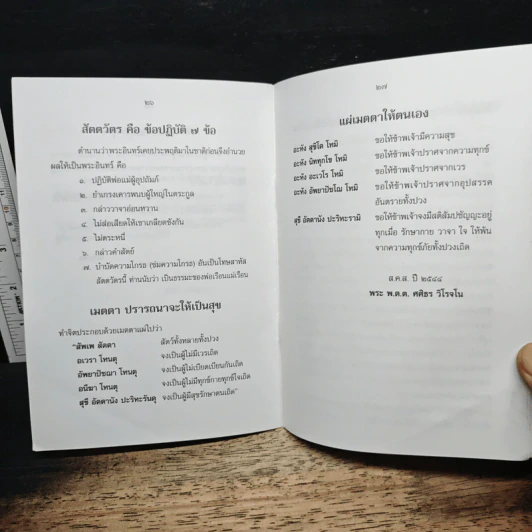 ๒๖
สัตตวัตร คือ ข้อปฏิบัติ ๗ ข้อ
ตำนานว่าพระอินทร์เคยประพฤติมาในชาติก่อนจึงอำนวย
ผลให้เป็นพระอินทร์ คือ
๑. ปฏิบัติพ่อแม่ผู้อุปถัมภ์
๒. ยำเกรงเคารพนบผู้ใหญ่ในตระกูล
๓. กล่าววาจาอ่อนหวาน
๔. ไม่ส่อเสียดให้เขาเกลียดชังกัน
๕. ไม่ตระหนี่
๖. กล่าวคำสัตย์
๗. บำบัดความโกรธ (ข่มความโกรธ) อันเป็นโทษสาหัส
สัตตวัตรนี้ ท่านนับว่า เป็นธรรมะของพ่อเรือนแม่เรือน
เมตตา ปรารถนาจะให้เป็นสุข
ทำจิตประกอบด้วยเมตตาแผ่ไปว่า
"สัพเพ สัตตา สัตว์ทั้งหลายทั้งปวง
อเวรา โหนตุ จงเป็นผู้ไม่มีเวรเถิด
อัพยาปัชฌา โหนตุ จงเป็นผู้ไม่เบียดเบียนกันเถิด
อนีฆา โหนตุ จงเป็นผู้ไม่มีทุกข์กายทุกข์ใจเถิด
สุขี อัตตานัง ปะริหะรันตุ จงเป็นผู้มีสุขรักษาตนเถิด"
๒๗
แผ่เมตตาให้ตนเอง
อะหัง สุขิโต โหมิ ขอให้ข้าพเจ้ามีความสุข
อะหัง นิททุกโข โหมิ ขอให้ข้าพเจ้าปราศจากความทุกข์
อะหัง อะเวโร โหมิ ขอให้ข้าพเจ้าปราศจากเวร
อะหัง อัพยาปัชโฌ โหมิ ขอให้ข้าพเจ้าปราศจากอุปสรรค
อันตรายทั้งปวง
สุขี อัตตานัง ปะริหะรามิ ขอให้ข้าพเจ้าจงมีสติสัมปชัญญะอยู่
ทุกเมื่อ รักษากาย วาจา ใจ ให้พ้น
จากความทุกข์ภัยทั้งปวงเถิด
ส.ค.ส. ปี ๒๕๔๔
พระ พ.ต.ต. ศศิธร วิโรจโน